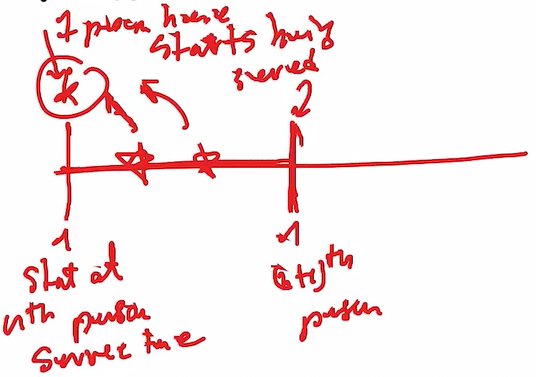 1 person hence
starts being
served
k
2
1
1
start at
nth person
service time
(n+1)th
person